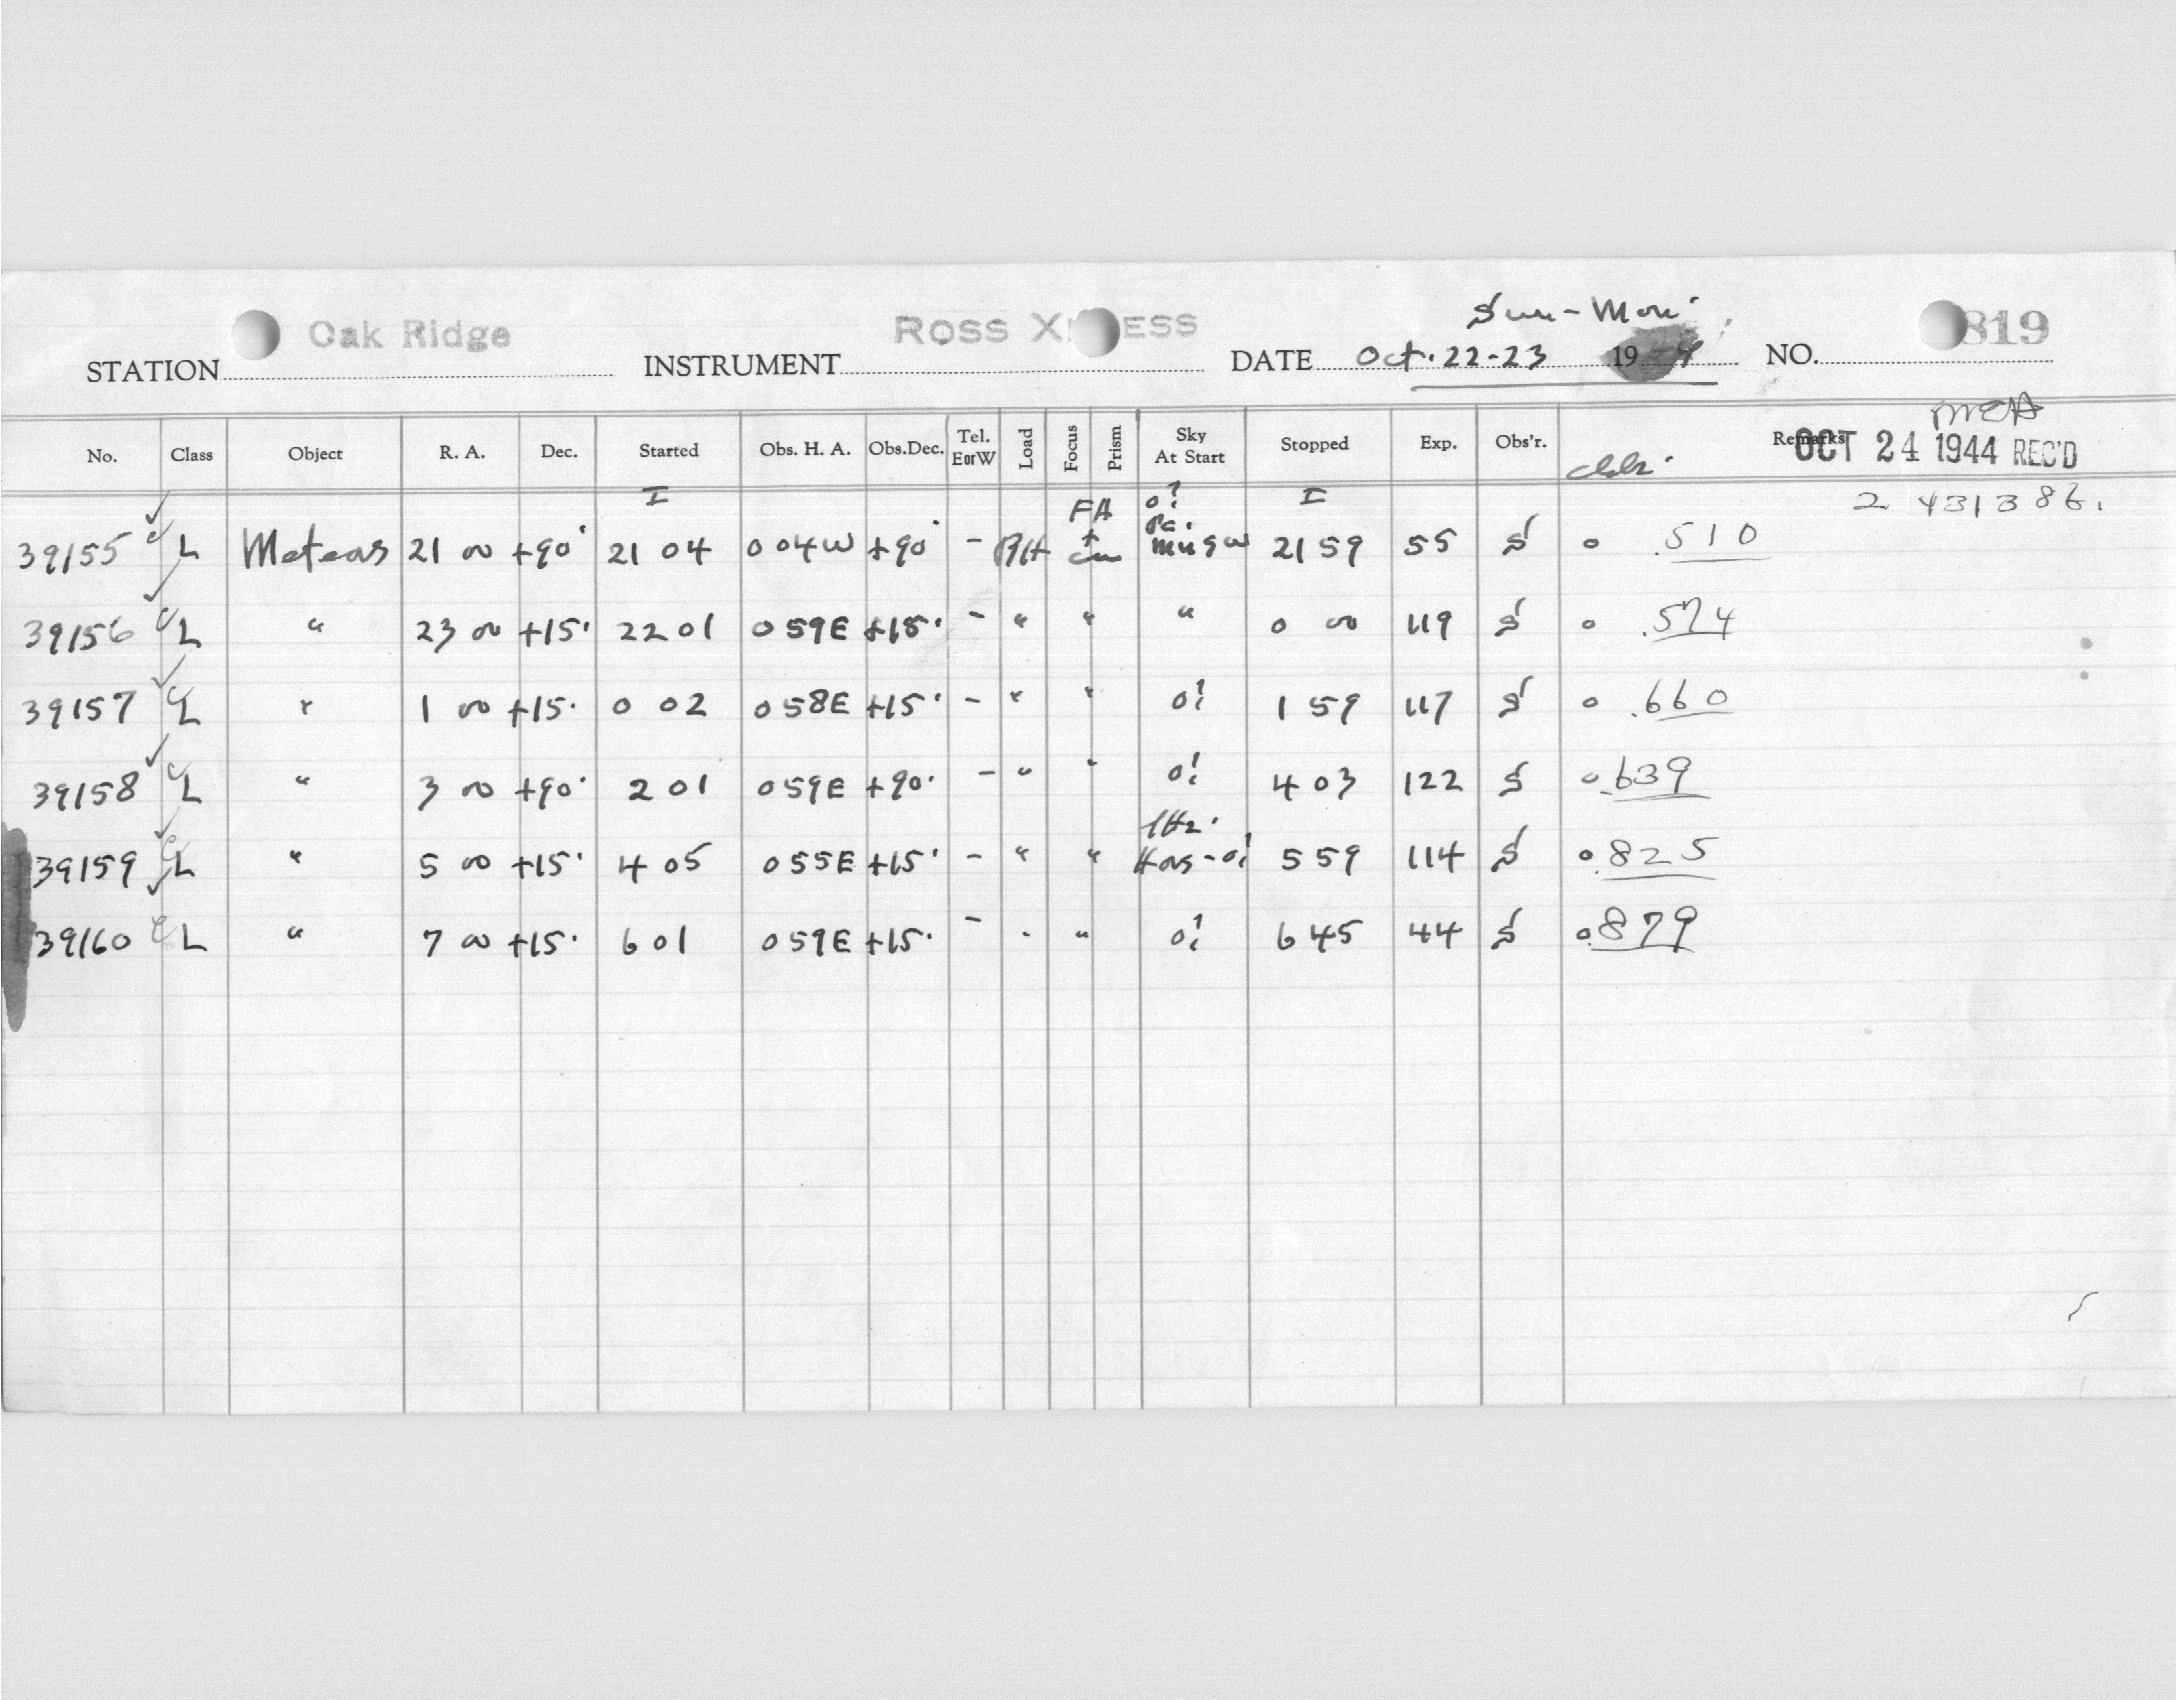 Sun-Mon
STATION Oak Ridge INSTRUMENT ROSS X ESS DATE Oct. 22-23 19 4 NO. 819
No. Class Object R. A. Dec. Started Obs. H. A. Obs.Dec. Tel. EorW Load Focus Prism Sky At Start Stopped Exp. Obs'r. Remarks
OCT 24 1944 REC'D
I FA o? I 2 431386.
39155 L Meteors 21 00 +90 21 04 0 04W +90 - 21 59 55 S 0 .510
39156 L " 23 00 +15 22 01 0 59E +15 - " " " 0 00 119 S 0 .574
39157 L " 1 00 +15 0 02 0 58E +15 - " " o! 1 59 117 S 0 .660
39158 L " 3 00 +90 2 01 0 59E +90 - " " o! 4 03 122 S 0 .639
39159 L " 5 00 +15 4 05 0 55E +15 - " " 5 59 114 S 0 .825
39160 L " 7 00 +15 6 01 0 59E +15 - " " o! 6 45 44 S 0 .879